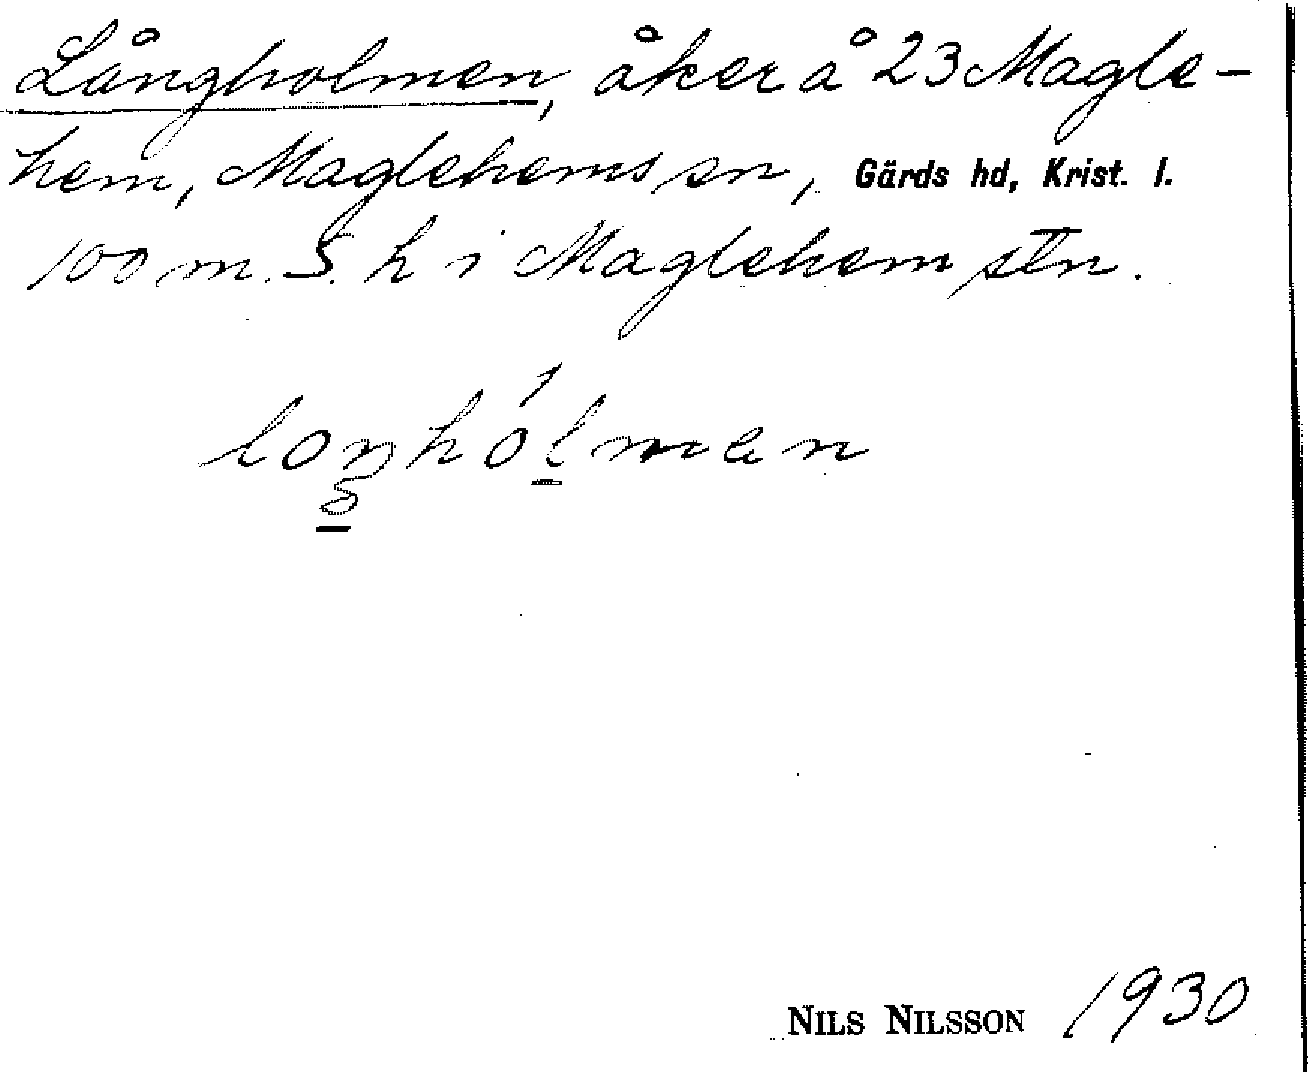 Långholmen, åker å 23 Magle-
hem, Maglehems sn, Gärds hd, Krist. l.
100 m. S. h i Maglehem stn.
loŋhólmen
NILS NILSSON 1930